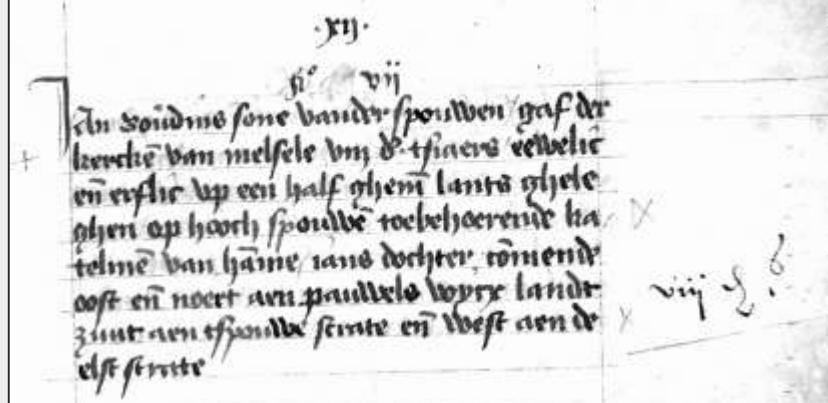 ·xij·
fº vij
Jan boudins sone vander spouwen gaf der
kerckē van melsele viij d̄ tsiaers eewelic
en̄ erflic up een half ghem̄ lants ghele
ghen op hooch spouwē toebehoerende ka
telinē van hāme jans dochter, cōmende
oost en̄ noert aen pauwels wycx landt
zuut aen tspouwe strate en̄ west aen de
elst strate
viij